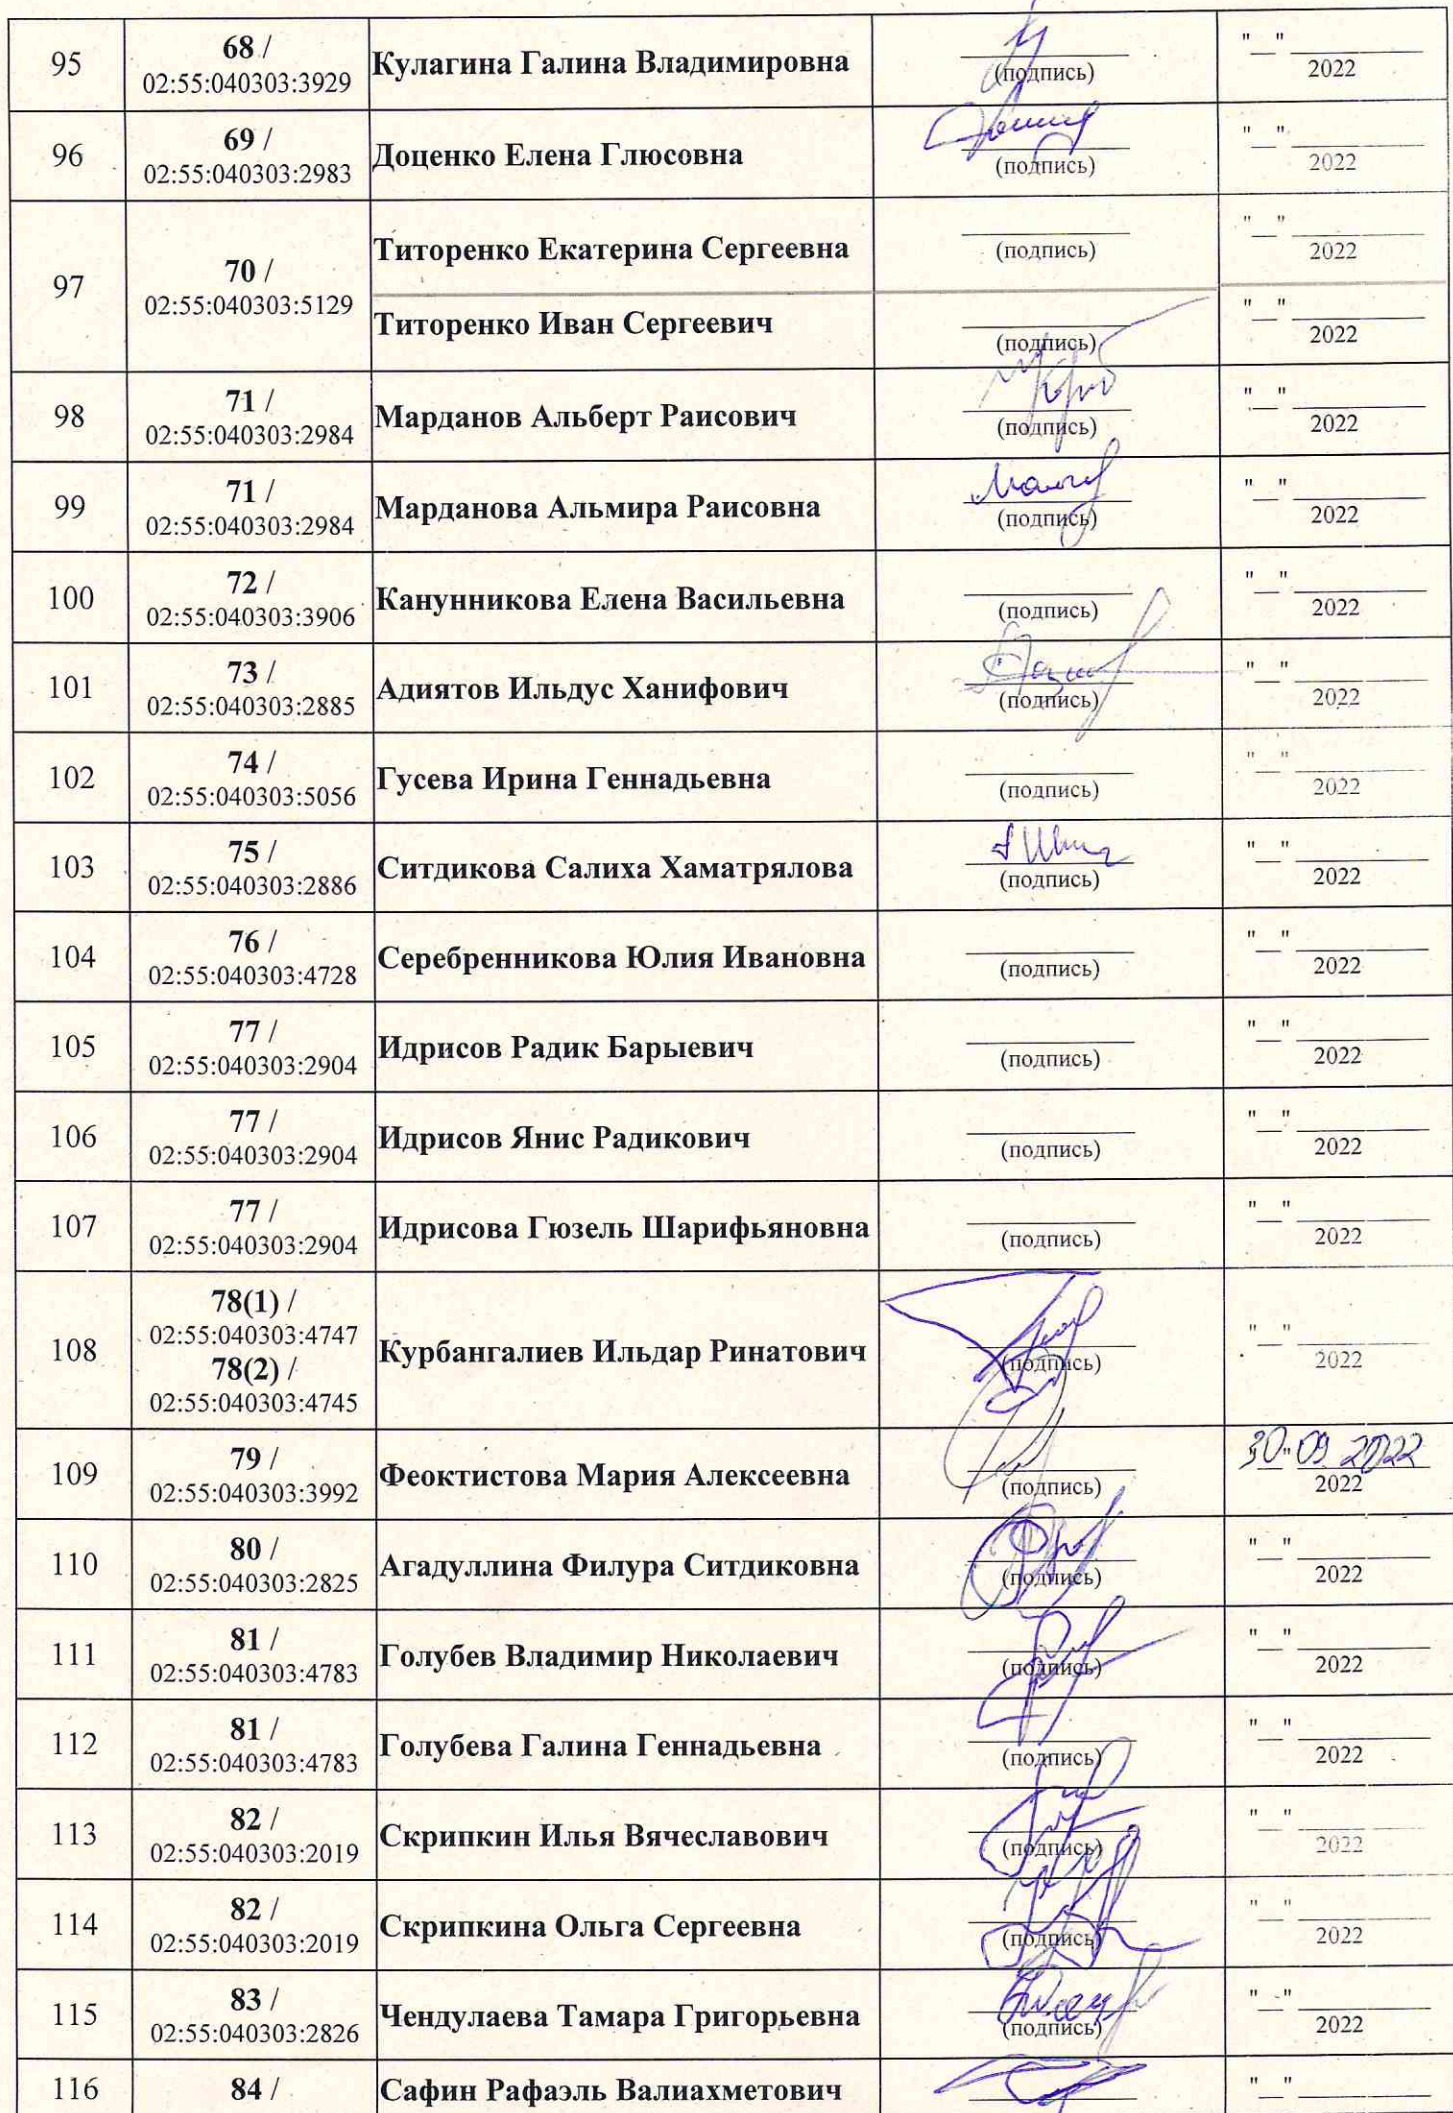 95
68 /
02:55:040303:3929
Кулагина Галина Владимировна
(подпись)
"__" ________
2022
96
69 /
02:55:040303:2983
Доценко Елена Глюсовна
(подпись)
"__" ________
2022
97
70 /
02:55:040303:5129
Титоренко Екатерина Сергеевна
(подпись)
"__" ________
2022
Титоренко Иван Сергеевич
(подпись)
"__" ________
2022
98
71 /
02:55:040303:2984
Марданов Альберт Раисович
(подпись)
"__" ________
2022
99
71 /
02:55:040303:2984
Марданова Альмира Раисовна
(подпись)
"__" ________
2022
100
72 /
02:55:040303:3906
Канунникова Елена Васильевна
(подпись)
"__" ________
2022
101
73 /
02:55:040303:2885
Адиятов Ильдус Ханифович
(подпись)
"__" ________
2022
102
74 /
02:55:040303:5056
Гусева Ирина Геннадьевна
(подпись)
"__" ________
2022
103
75 /
02:55:040303:2886
Ситдикова Салиха Хаматрялова
(подпись)
"__" ________
2022
104
76 /
02:55:040303:4728
Серебренникова Юлия Ивановна
(подпись)
"__" ________
2022
105
77 /
02:55:040303:2904
Идрисов Радик Барыевич
(подпись)
"__" ________
2022
106
77 /
02:55:040303:2904
Идрисов Янис Радикович
(подпись)
"__" ________
2022
107
77 /
02:55:040303:2904
Идрисова Гюзель Шарифьяновна
(подпись)
"__" ________
2022
108
78(1) /
02:55:040303:4747
78(2) /
02:55:040303:4745
Курбангалиев Ильдар Ринатович
(подпись)
"__" ________
2022
109
79 /
02:55:040303:3992
Феоктистова Мария Алексеевна
(подпись)
30 " 09 2022
2022
110
80 /
02:55:040303:2825
Агадуллина Филура Ситдиковна
(подпись)
"__" ________
2022
111
81 /
02:55:040303:4783
Голубев Владимир Николаевич
(подпись)
"__" ________
2022
112
81 /
02:55:040303:4783
Голубева Галина Геннадьевна
(подпись)
"__" ________
2022
113
82 /
02:55:040303:2019
Скрипкин Илья Вячеславович
(подпись)
"__" ________
2022
114
82 /
02:55:040303:2019
Скрипкина Ольга Сергеевна
(подпись)
"__" ________
2022
115
83 /
02:55:040303:2826
Чендулаева Тамара Григорьевна
(подпись)
"__" ________
2022
116
84 /
Сафин Рафаэль Валиахметович
"__" ________